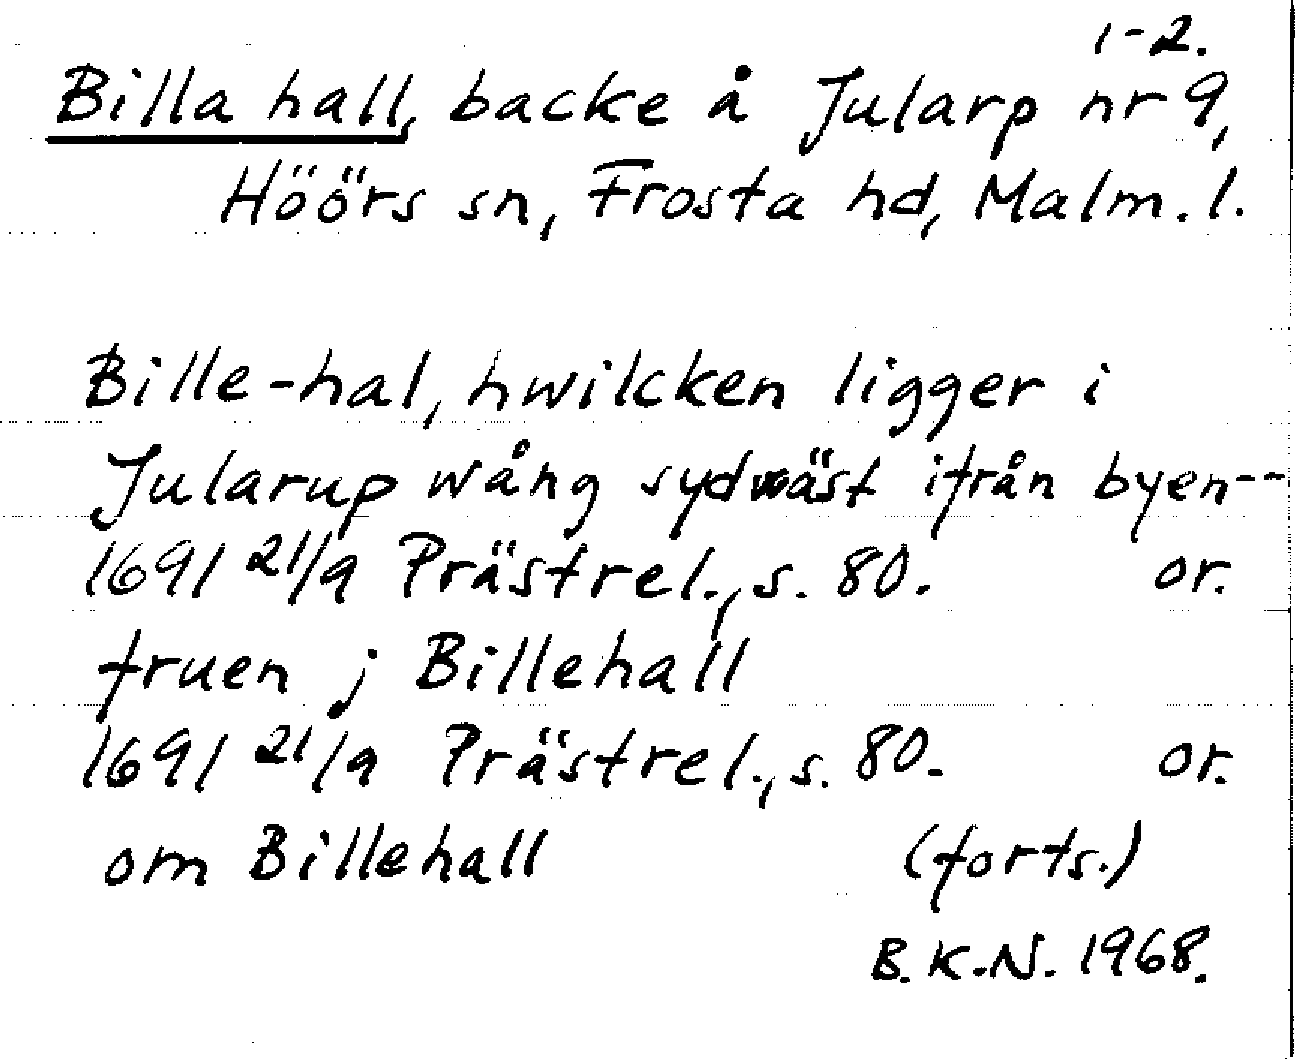 1-2.
Billa hall, backe å Jularp nr 9,
Höörs sn, Frosta hd, Malm. l.
Bille-hal, hwilcken ligger i
Jularup wång sydwäst ifrån byen--
1691 21/9 Prästrel., s. 80. or.
fruen j Billehall
1691 21/9 Prästrel., s. 80. or.
om Billehall (forts.)
B. K.-N. 1968.